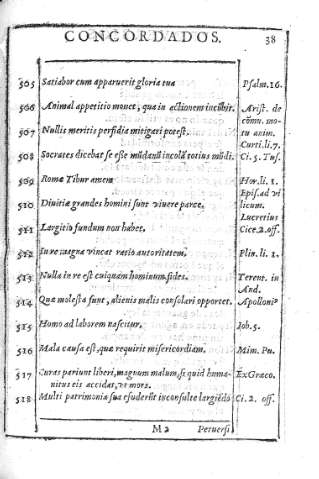 CONCORDADOS. 38
505 Satiabor cum apparuerit gloria tua Psalm.16.
506 Animal appetitio mouet, qua in actionem incũbit. Arist. de
cõmu. mo-
507 Nullis meritis perfidia mitigari potest. tu anim.
Curti.li.7.
508 Socrates dicebat se esse mũdanũ incolã totius mũdi. Ci. 5. Tus.
509 Romæ Tibur amem Hor.li. 1.
Epis.ad vi
510 Diuitiæ grandes homini sunt viuere parce. licum.
Lucretius
511 Largitio fundum non habet. Cice.2.off.
512 Iure magna vincat ratio autoritatem. Plin.li. 1.
513 Nulla in re est cuiquam hominum fides. Terent. in
And.
514 Quæ molesta sunt, alienis malis consolari oportet. Apolloni⁹
515 Homo ad laborem nascitur. Iob.5.
516 Mala causa est, quæ requirit misericordiam. Mim. Pu.
517 Curas pariunt liberi, magnum malum, si quid huma- Ex Græco.
nitus eis accidat, vt mors.
518 Multi patrimonia sua efuderũt inconsulte largiẽdo Ci. 2. off.
M 2 Peruersi